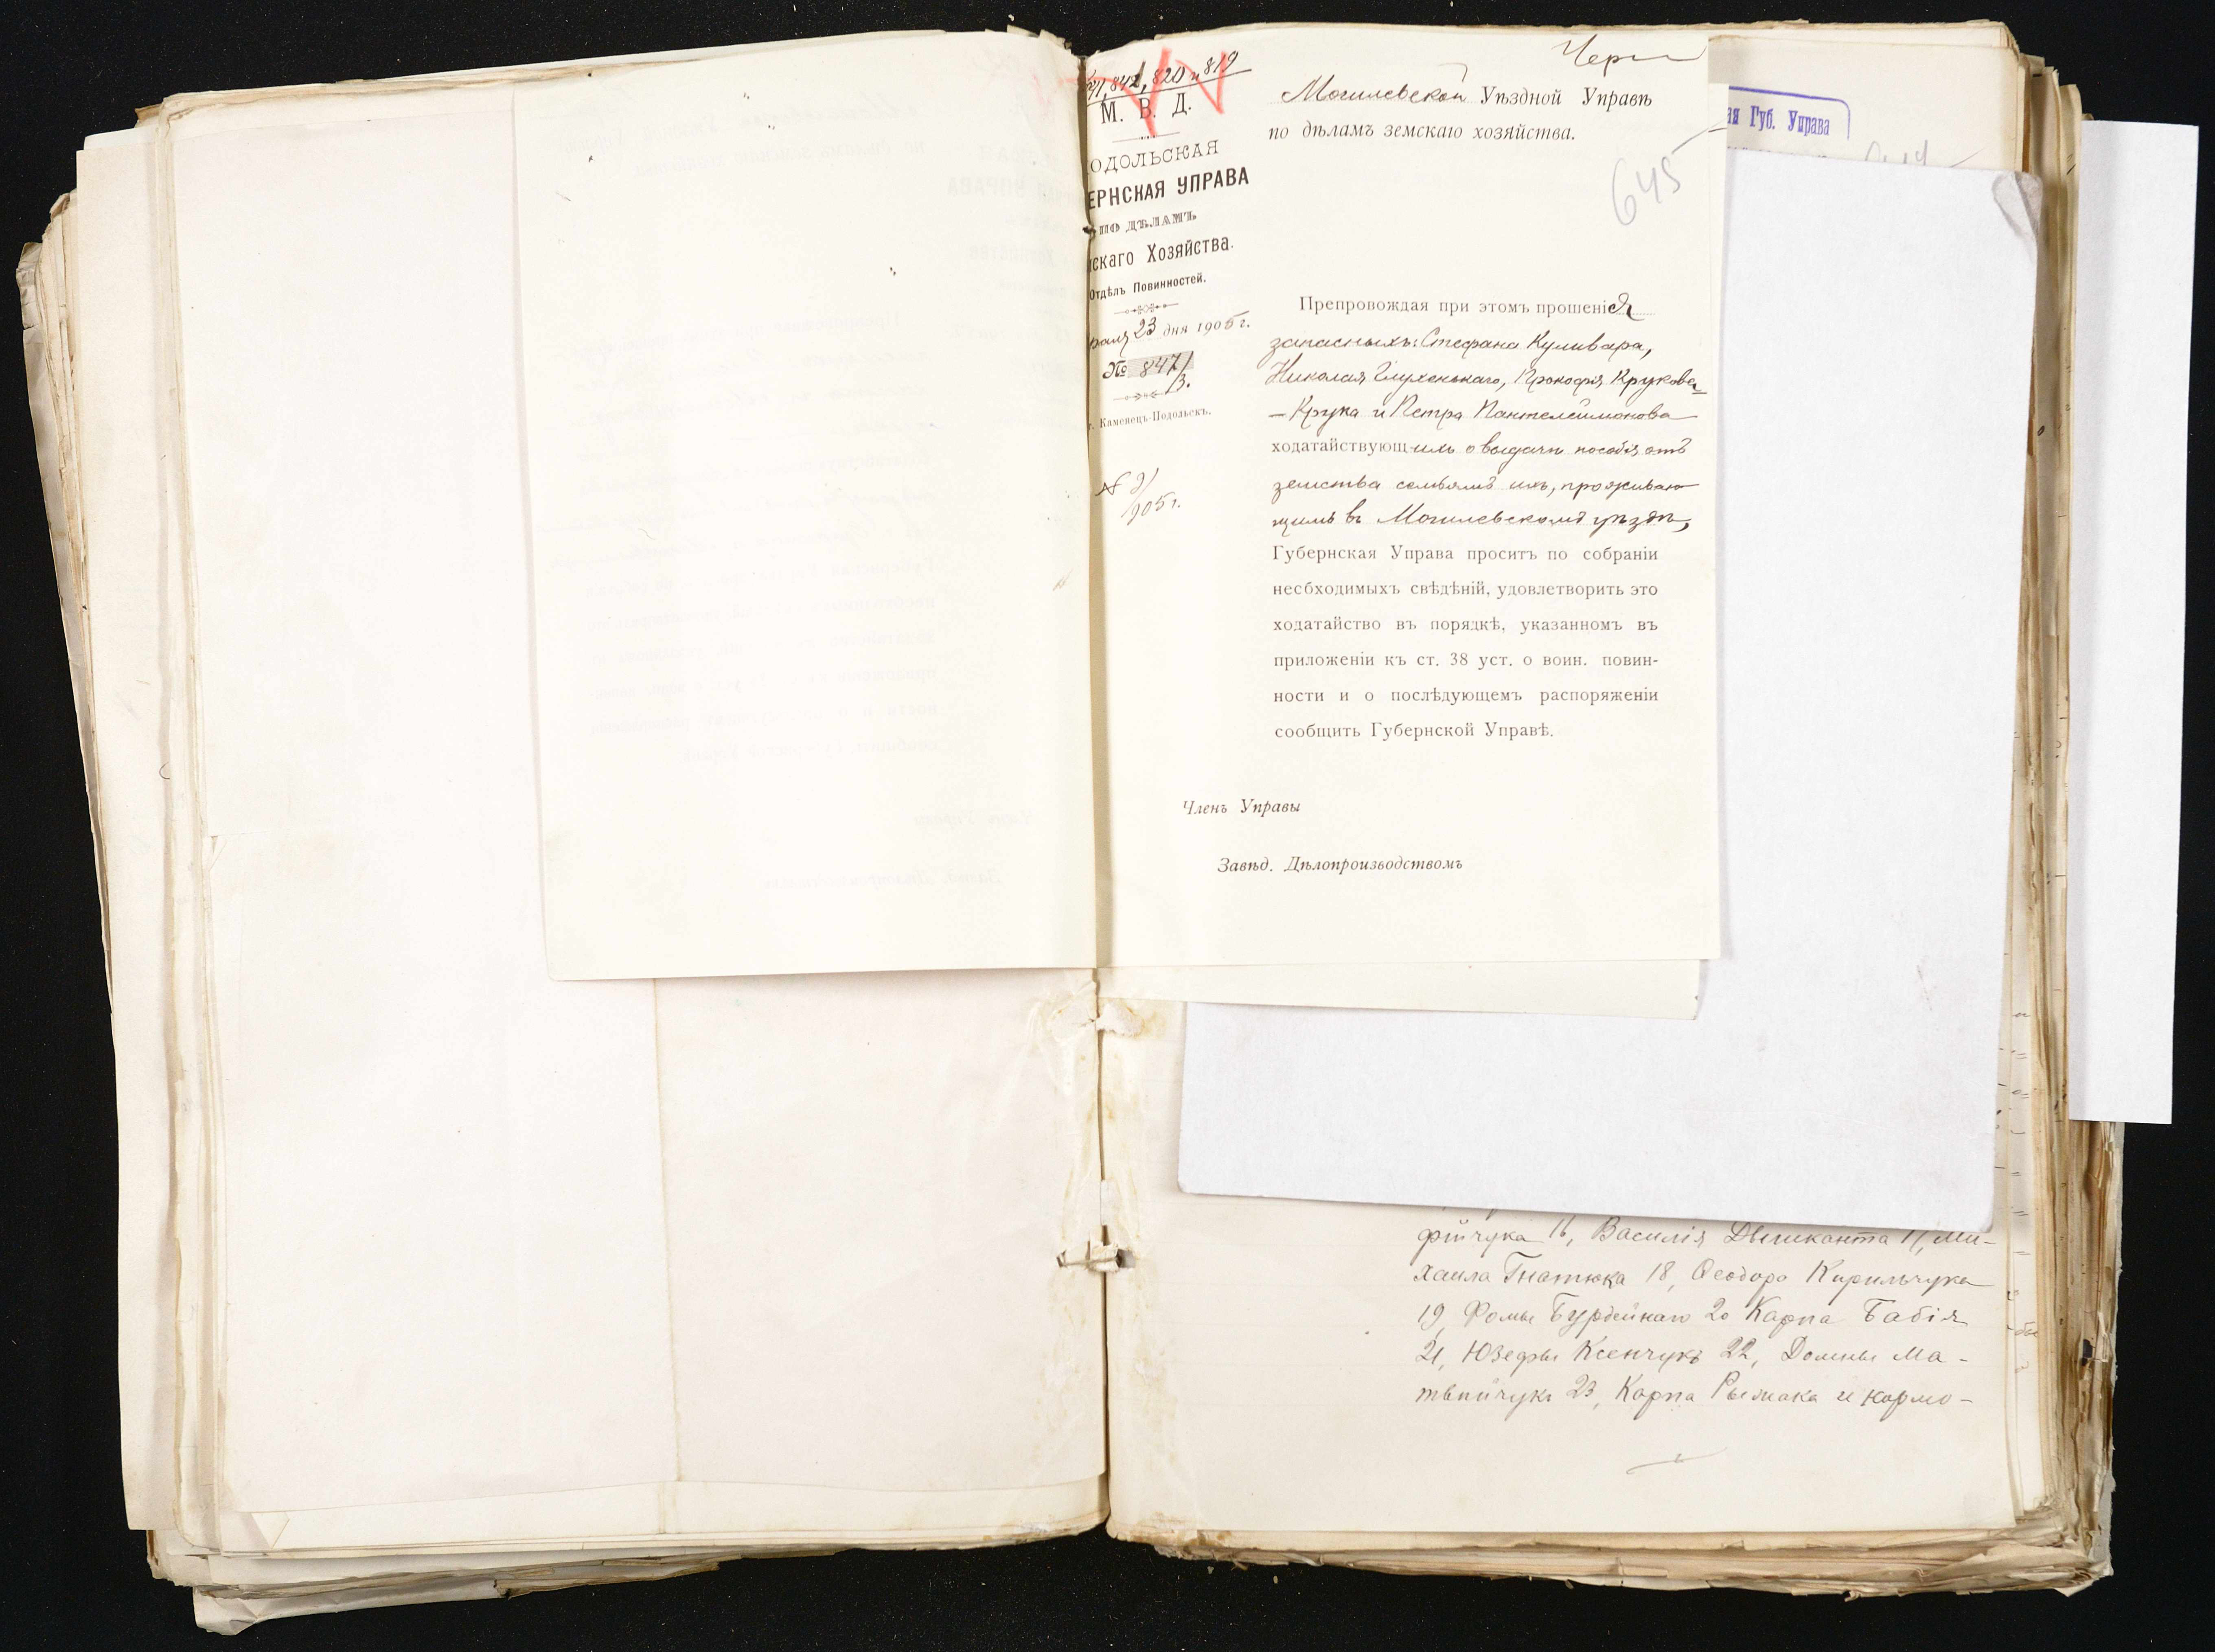 841, 842, 820 и 819
М. В. Д.
ОДОЛЬСКАЯ
ЕРНСКАЯ УПРАВА
ПО ДѢЛАМЪ
скаго Хозяйства.
Отдѣлъ Повинностей.
раля 23 дня 1905 г.
№ 847/3.
г. Каменецъ-Подольскъ.
905 г.
Черн
Могилевской Уѣздной Управѣ
по дѣламъ земскаго хозяйства.
645
Препровождая при этомъ прошенія
запасныхъ: Стефана Куливара,
Николая Глухенькаго, Прокофія Крукова
– Крука и Петра Пантелеймонова
ходатайствующихъ о выдачѣ пособія отъ
земства семьямъ ихъ, проживаю
щимъ въ Могилевскомъ уѣздѣ,
Губернская Управа проситъ по собраніи
несбходимыхъ свѣдѣній, удовлетворить это
ходатайство въ порядкѣ, указанномъ въ
приложеніи къ ст. 38 уст. о воин. повин-
ности и о послѣдующемъ распоряженіи
сообщить Губернской Управѣ.
Членъ Управы
Завѣд. Дѣлопроизводствомъ
ая Губ. Управа
фійчука 16, Василія Дзиканта 17, Ми-
хаила Гнатюка 18, Ѳеодора Кирильчука
19, Фомы Бурдейнаго 20 Карпа Бабія
21, Юзефы Ксенчукъ 22, Домны Ма-
твѣйчукъ 23, Карпа Рымака и кормо-